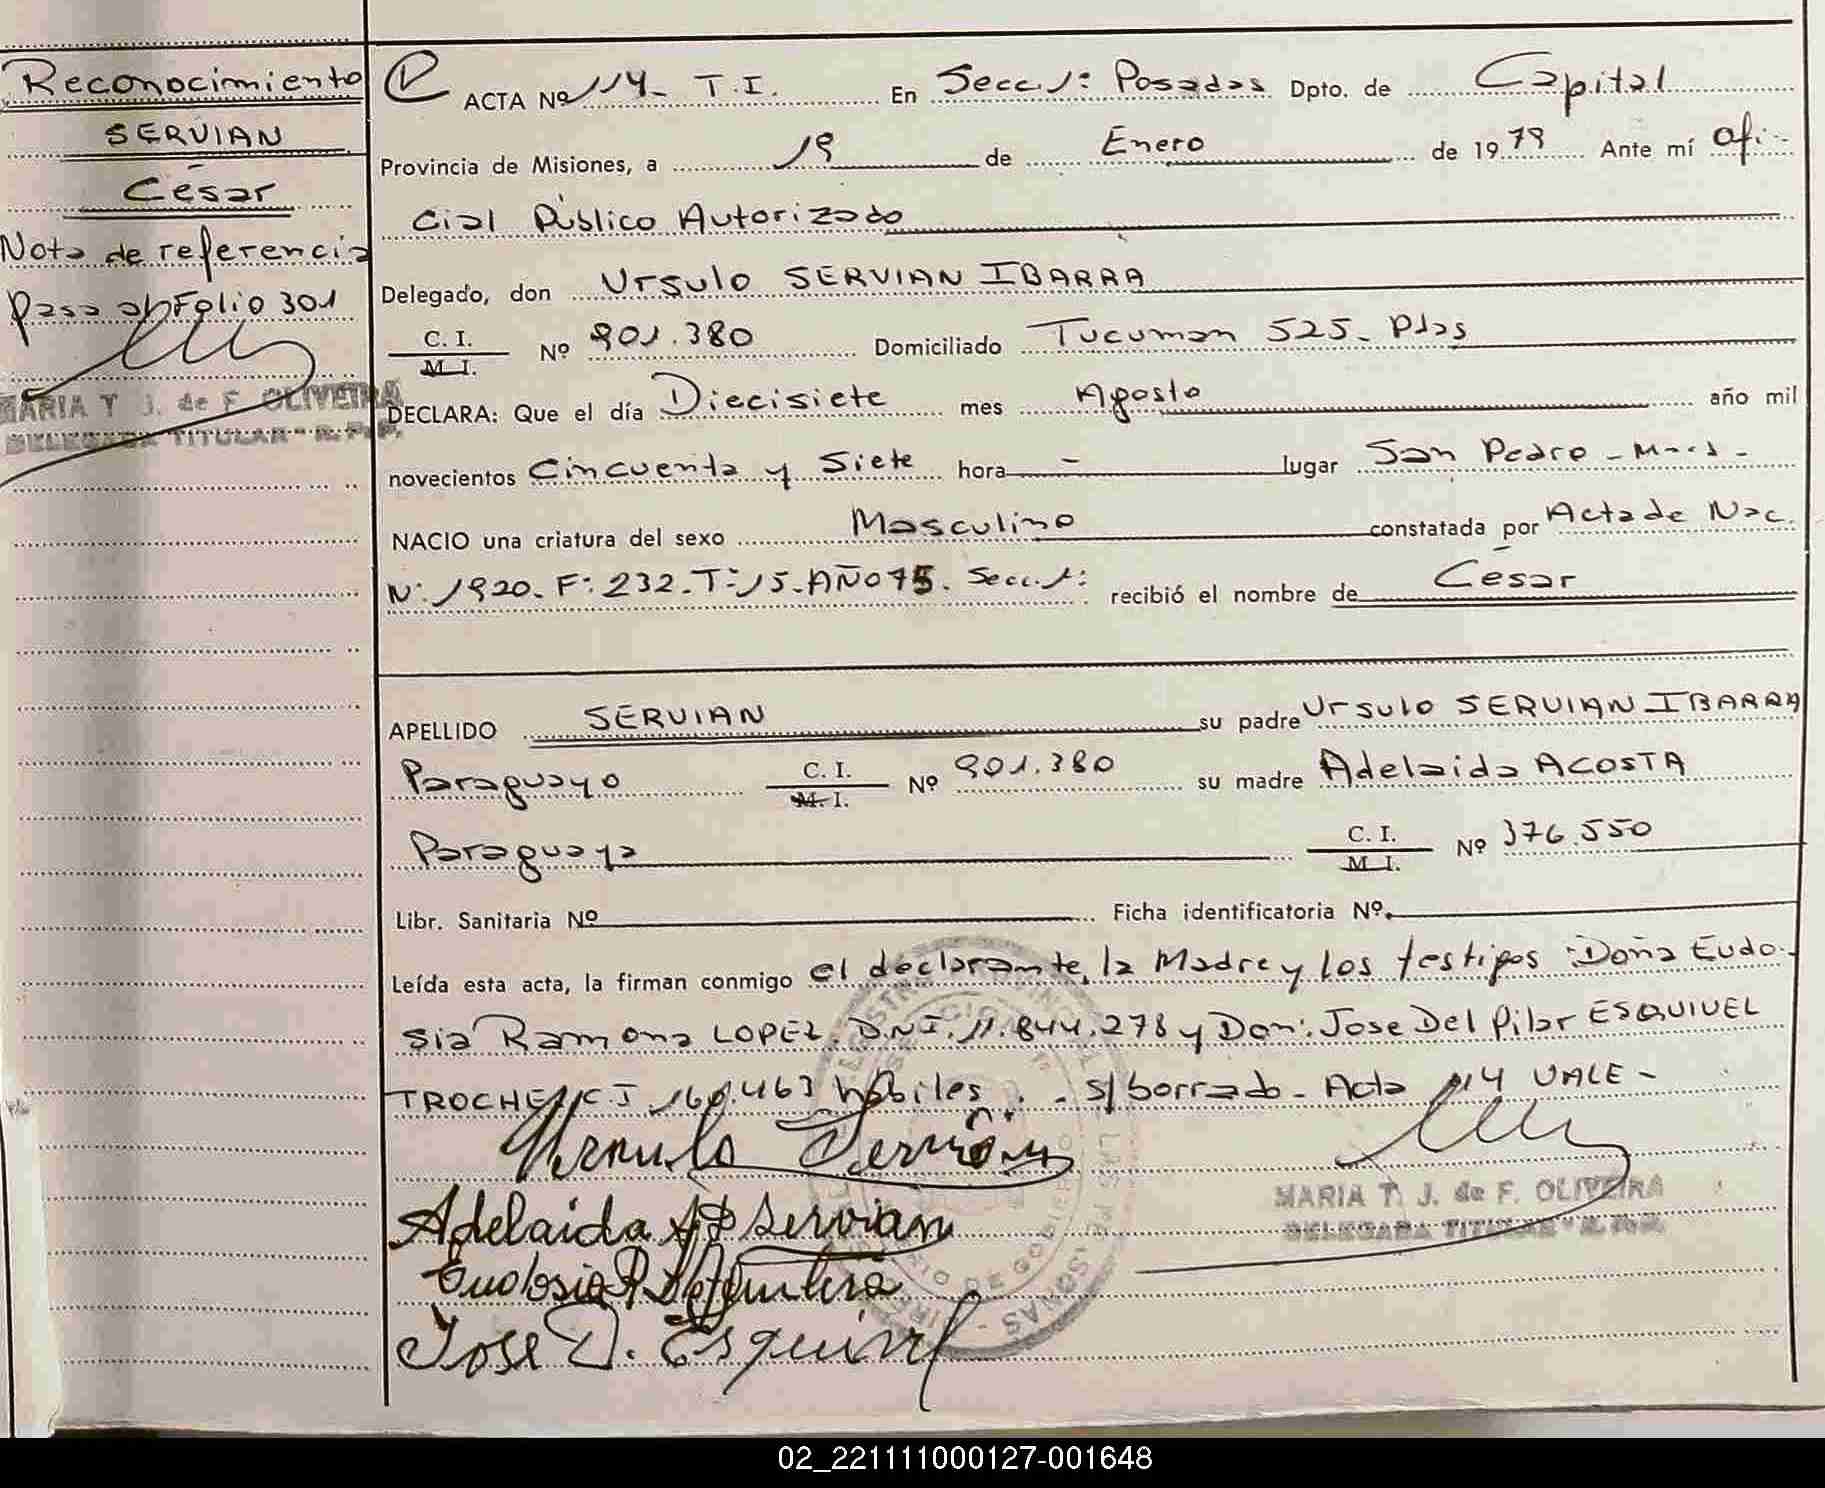 Reconocimiento
SERVIAN
César
Nota de referencia
Pasa al Folio 301
MARIA T. J. de F. OLIVEIRA
DELEGADA TITULAR - R. P. P.
ACTA Nº 114- T.I. En Secc. 1: Posadas Dpto. de Capital
Provincia de Misiones, a 19 de Enero de 1979 Ante mí Ofi-
cial Público Autorizado
Delegado, don Ursulo SERVIAN IBARRA
C. I. / M. I. Nº 901.380 Domiciliado Tucuman 525- Pdas
DECLARA: Que el día Diecisiete mes Agosto año mil
novecientos Cincuenta y Siete hora - lugar San Pedro -
NACIO una criatura del sexo Masculino constatada por Acta de Nac.
Nº: 1920- F: 232- T: 15- AÑO 75. Secc. 1: recibió el nombre de César
APELLIDO SERVIAN su padre Ursulo SERVIAN IBARRA
Paraguayo C. I. / M. I. Nº 901.380 su madre Adelaida ACOSTA
Paraguaya C. I. / M. I. Nº 376.550
Libr. Sanitaria Nº Ficha identificatoria Nº.
Leída esta acta, la firman conmigo el declarante, la Madre y los testigos: Doña Eudo-
sia Ramona LOPEZ. D.N.I. 11.844.278 y Don: Jose Del Pilar ESQUIVEL
TROCHE C.I. 160.463 hábiles. - s/borrado - Acta 114 VALE -
Ursulo Servián
Adelaida A de Servian
MARIA T. J. de F. OLIVEIRA
DELEGADA TITULAR - R. P. P.
Jose D. Esquivel
02_221111000127-001648